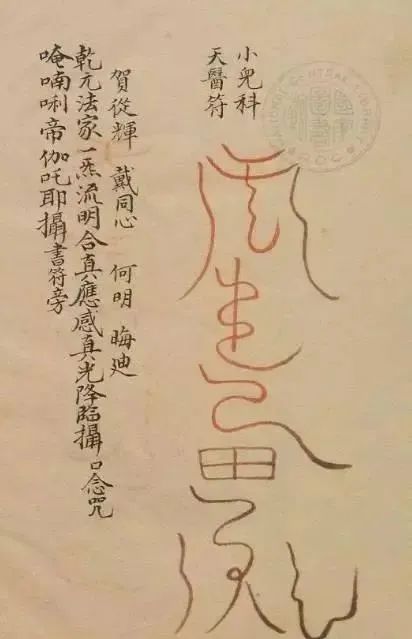 小兒科
天醫符
賀從輝 戴同心 何明 晦廸
乾元法家一炁流明合真應感真光降臨攝口念咒
唵喃唎帝伽吒耶攝書符旁
NATIONAL CENTRAL LIBRARY